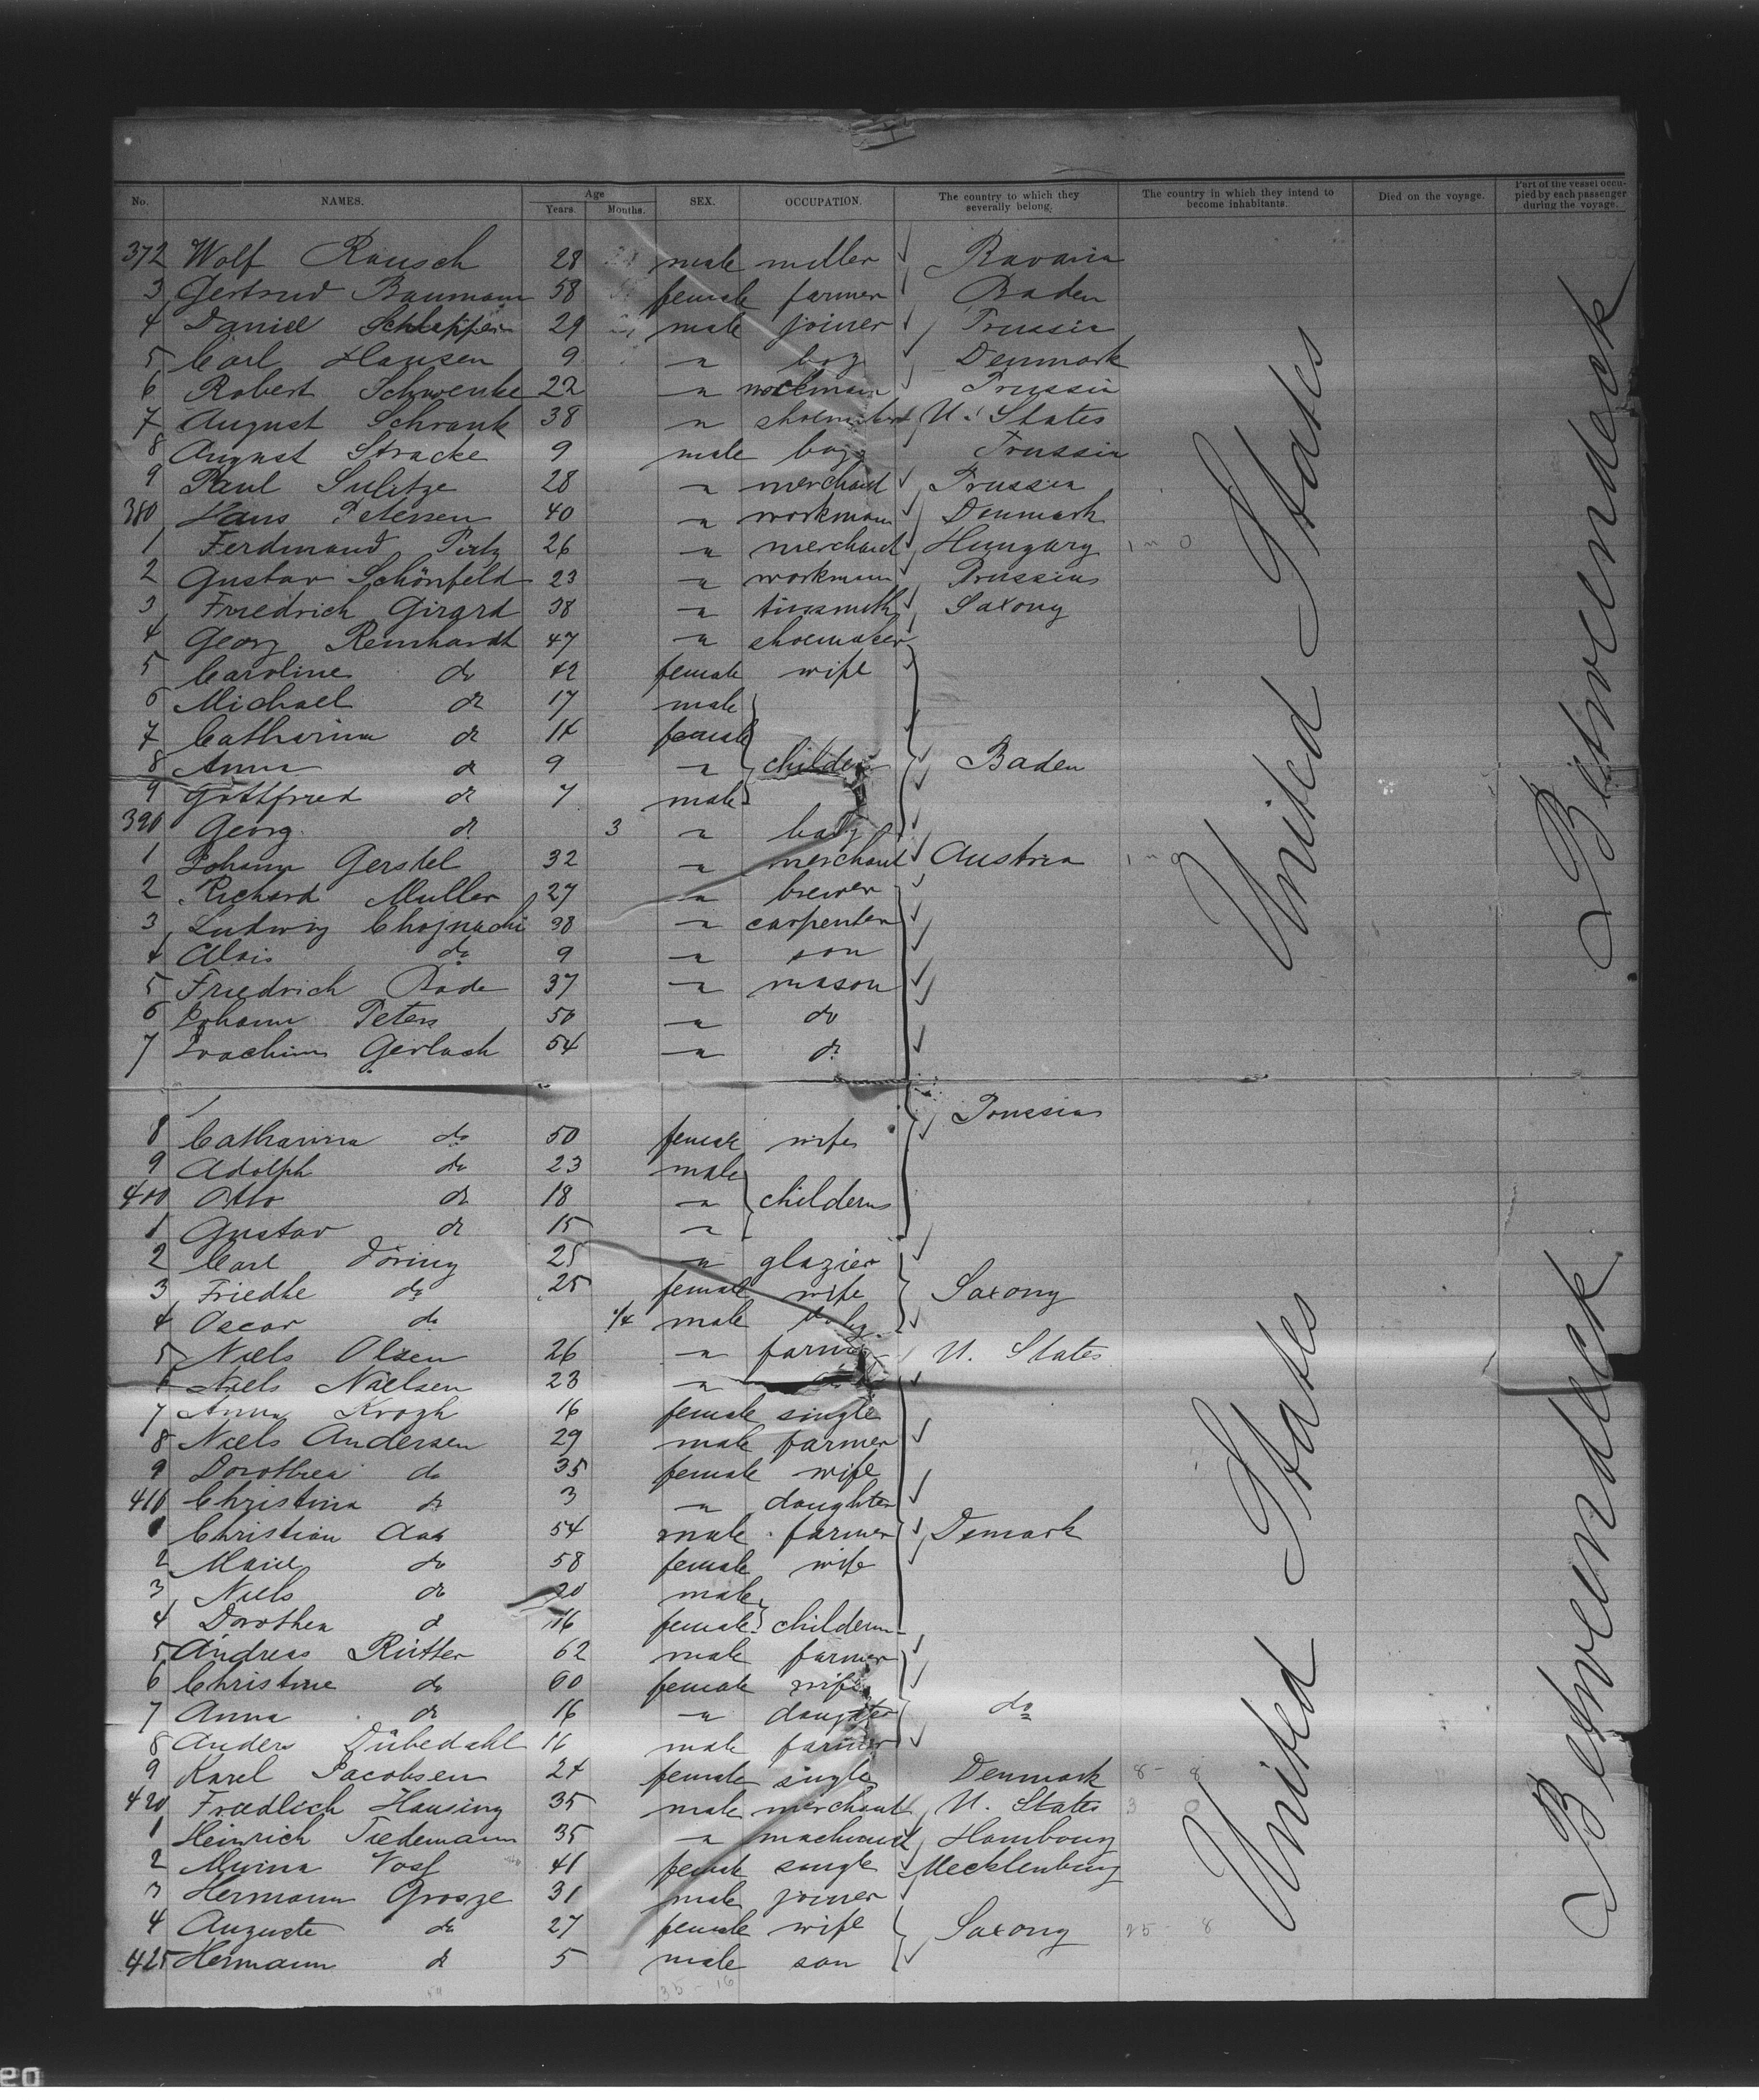 No. NAMES. Age Years. Months. SEX. OCCUPATION. The country to which they severally belong. The country in which they intend to become inhabitants. Died on the voyage. Part of the vessel occupied by each passenger during the voyage.
372 Wolf Rausch 28 male miller Bavaria
3 Gertrud Baumann 58 female farmer Baden
4 Daniel 29 male joiner Prussia
5 Carl Hansen 9 " boy Denmark
6 Robert Schwenke 22 " workman Prussia
7 August Schrank 38 " shoemaker U. States
8 August Stracke 9 male boy Prussia
9 Paul Sulitze 28 " merchant Prussia
380 Hans Petersen 40 " workman Denmark
1 Ferdinand 26 " merchant Hungary
2 Gustav Schönfeld 23 " workman Prussia
3 Friedrich Girard 38 " tinsmith Saxony
4 Georg Reinhardt 47 " shoemaker
5 Caroline do 42 female wife
6 Michael do 17 male
7 Catharina do 14 female
8 Anna do 9 " childern Baden
9 Gottfried do 7 male
390 Georg do 3 " baby
1 Johann Gerstel 32 " merchant Austria
2 Richard Muller 27 " brewer
3 Ludwig Chojnacki 38 " carpenter
4 Alois do 9 " son
5 Friedrich Bade 37 " mason
6 Johann Peters 50 " do
7 Joachim Gerlach 54 " do
Prussia
8 Catharina do 50 female wife
9 Adolph do 23 male
400 Otto do 18 " childern
1 Gustav do 15 "
2 Carl Döring 25 " glazier
3 Friedke do 25 female wife Saxony
4 Oscar do male baby
5 Niels Olsen 26 " farmer U. States
6 Niels Nielsen 23 "
7 Anna Krogh 16 female single
8 Niels Andersen 29 male farmer
9 Dorothea do 35 female wife
410 Christina do 3 " daughter
1 Christian Aas 54 male farmer Demark
2 Marie do 58 female wife
3 Niels do 20 male
4 Dorothea do 16 female childern
5 Andreas Rütter 62 male farmer
6 Christine do 60 female wife
7 Anna do 16 " daughter do
8 Anders Dübedahl 16 male farmer
9 Karel Jacobsen 24 female single Denmark 8 - 8
420 Friedlich Hansing 35 male merchant U. States 3 0
1 Heinrich Tiedemann 35 " Hambourg
2 Vosf 41 female single Mecklenburg
3 Hermann Grosze 31 male joiner
4 Auguste do 27 female wife Saxony 25 - 8
425 Hermann do 5 male son
35 - 16
United States
United States
Betweendeck
Betweendeck
20